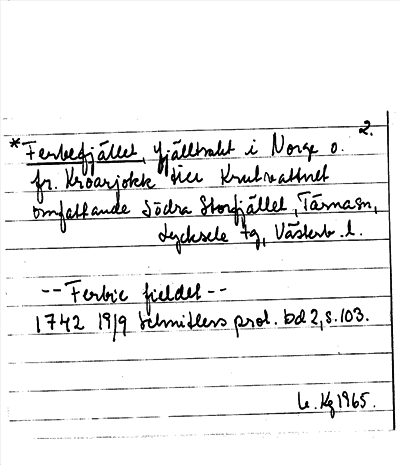 2.
*Ferbefjället, fjälltrakt i Norge o.
fr. Kroarjokk till Krutvattnet
omfattande Södra Storfjället, Tärna sn,
Lycksele tg, Västerb. l.
-- Ferbie fieldet --
1742 19/9 Schnitlers prot. bd 2, s. 103.
Kg 1965.